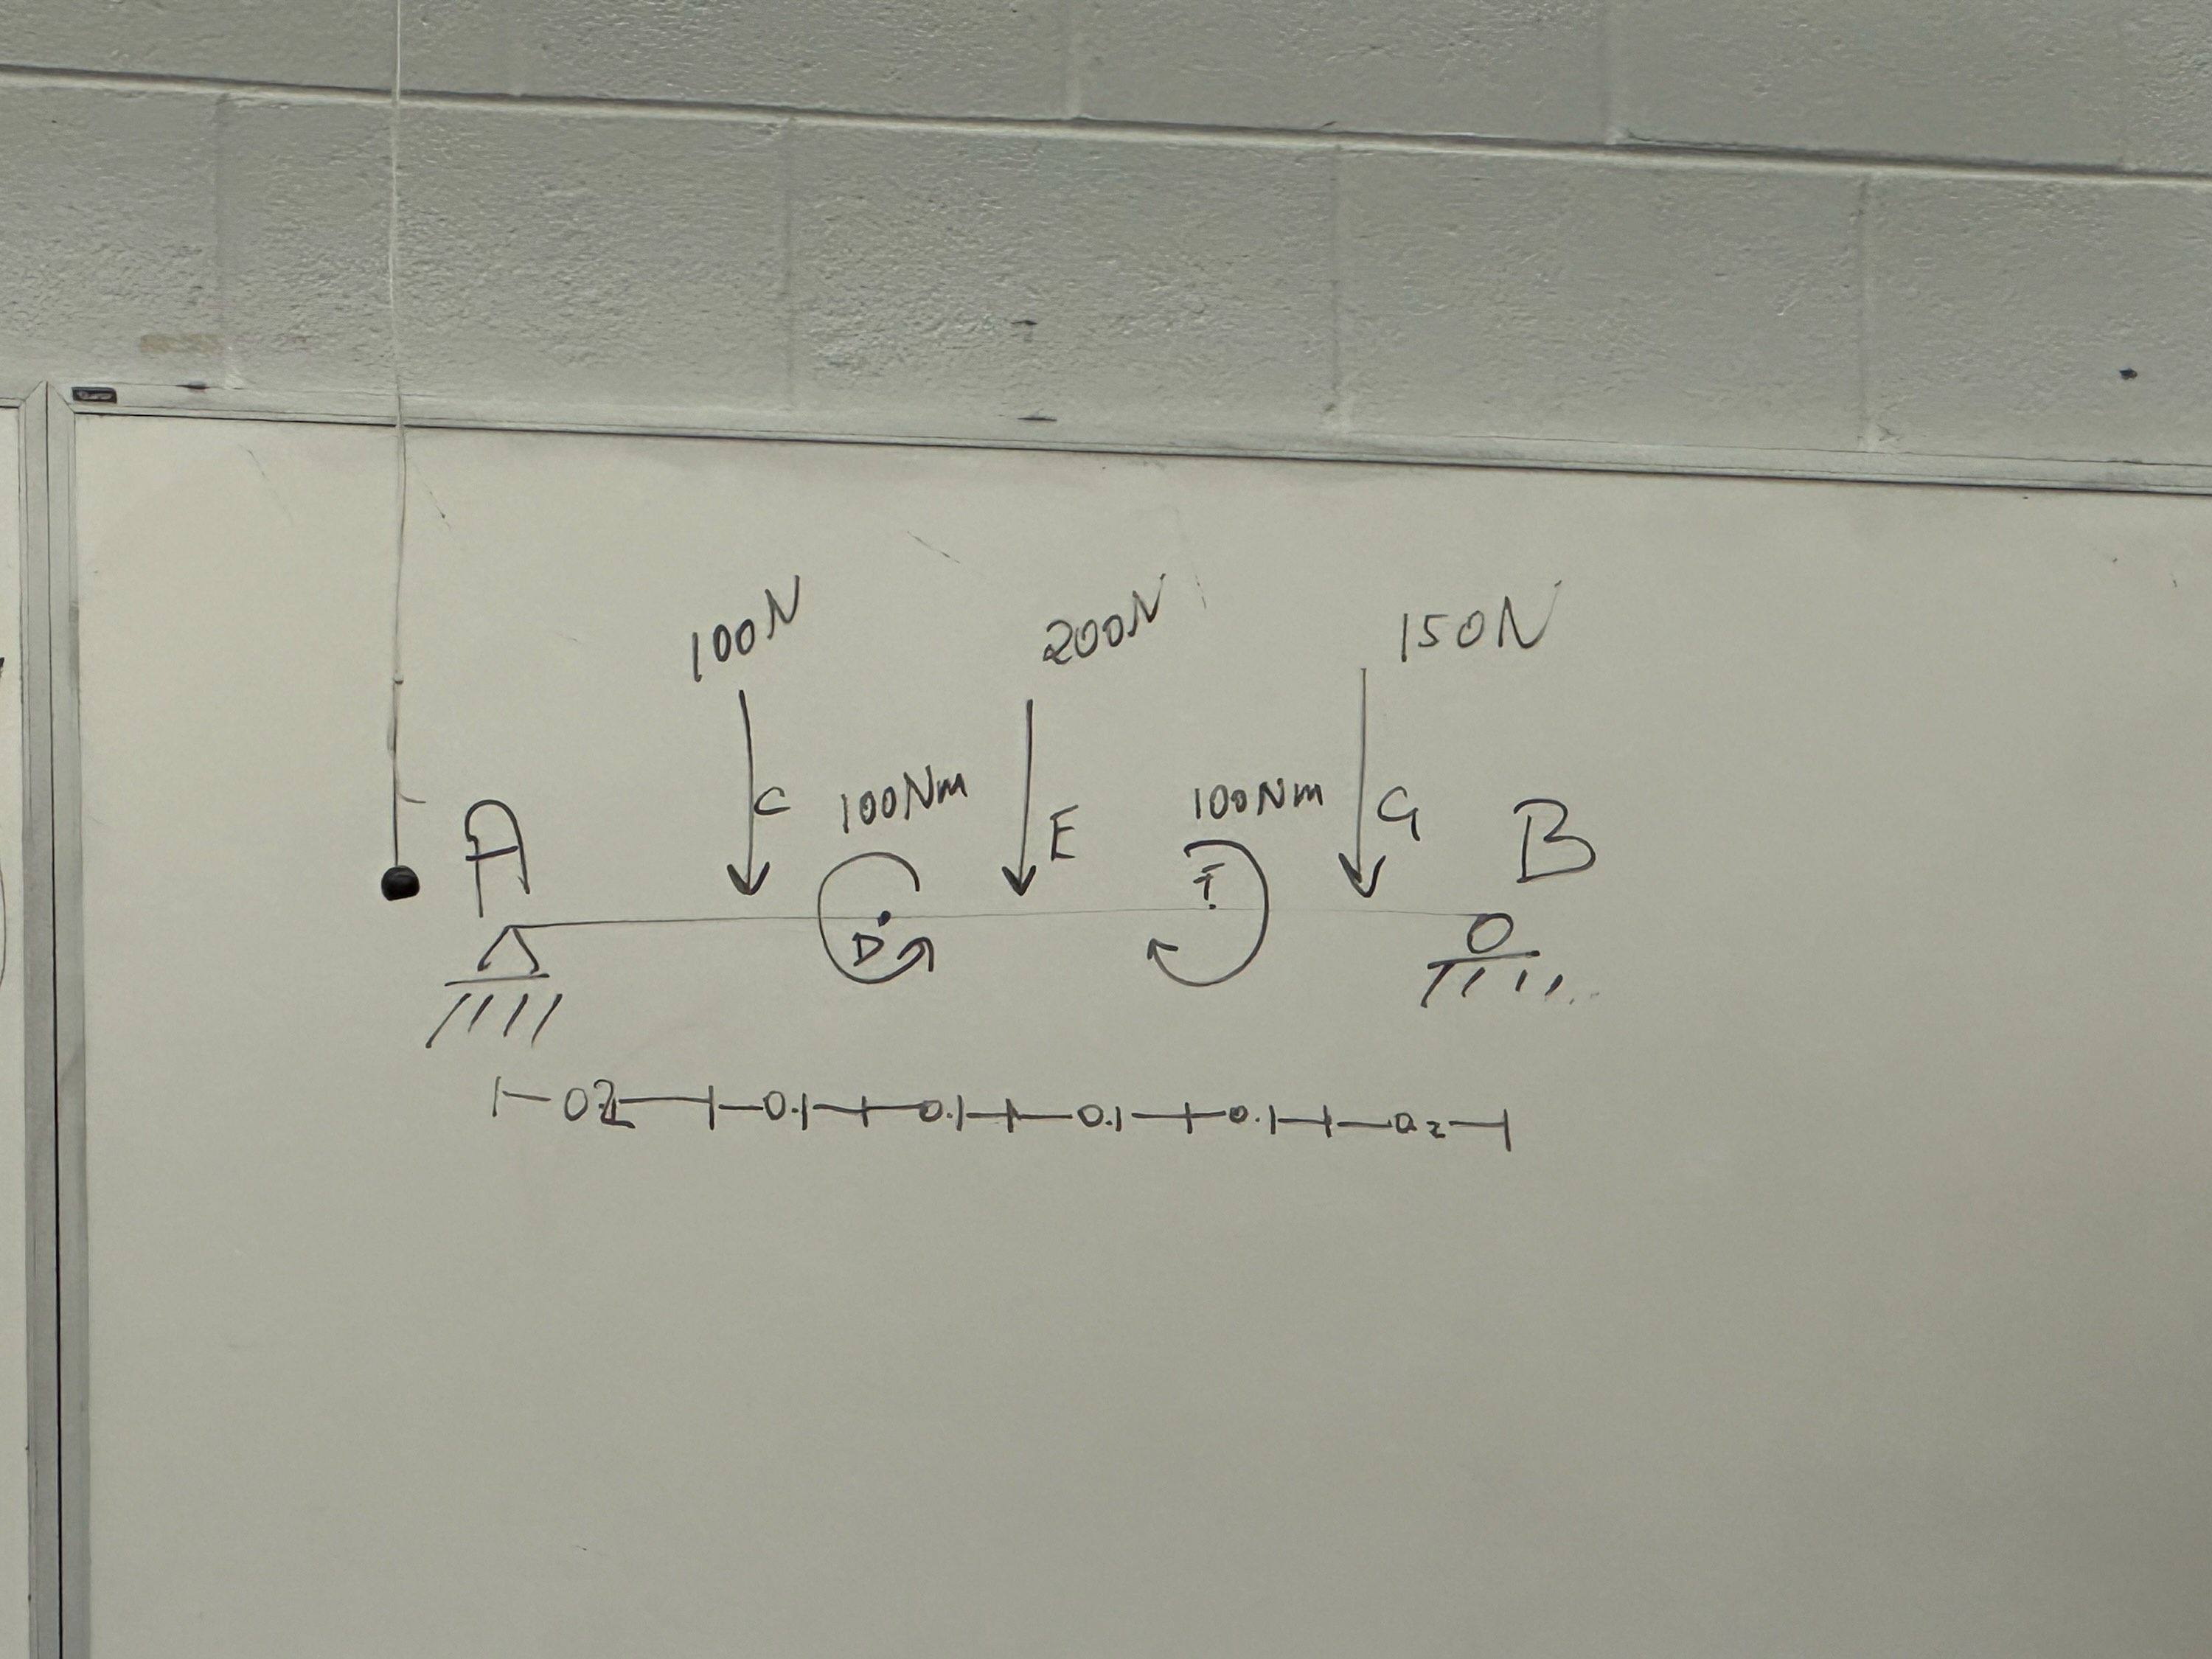 100N 200N 150N
100Nm 100Nm
A C E G B
D F
0.2 0.1 0.1 0.1 0.1 0.2